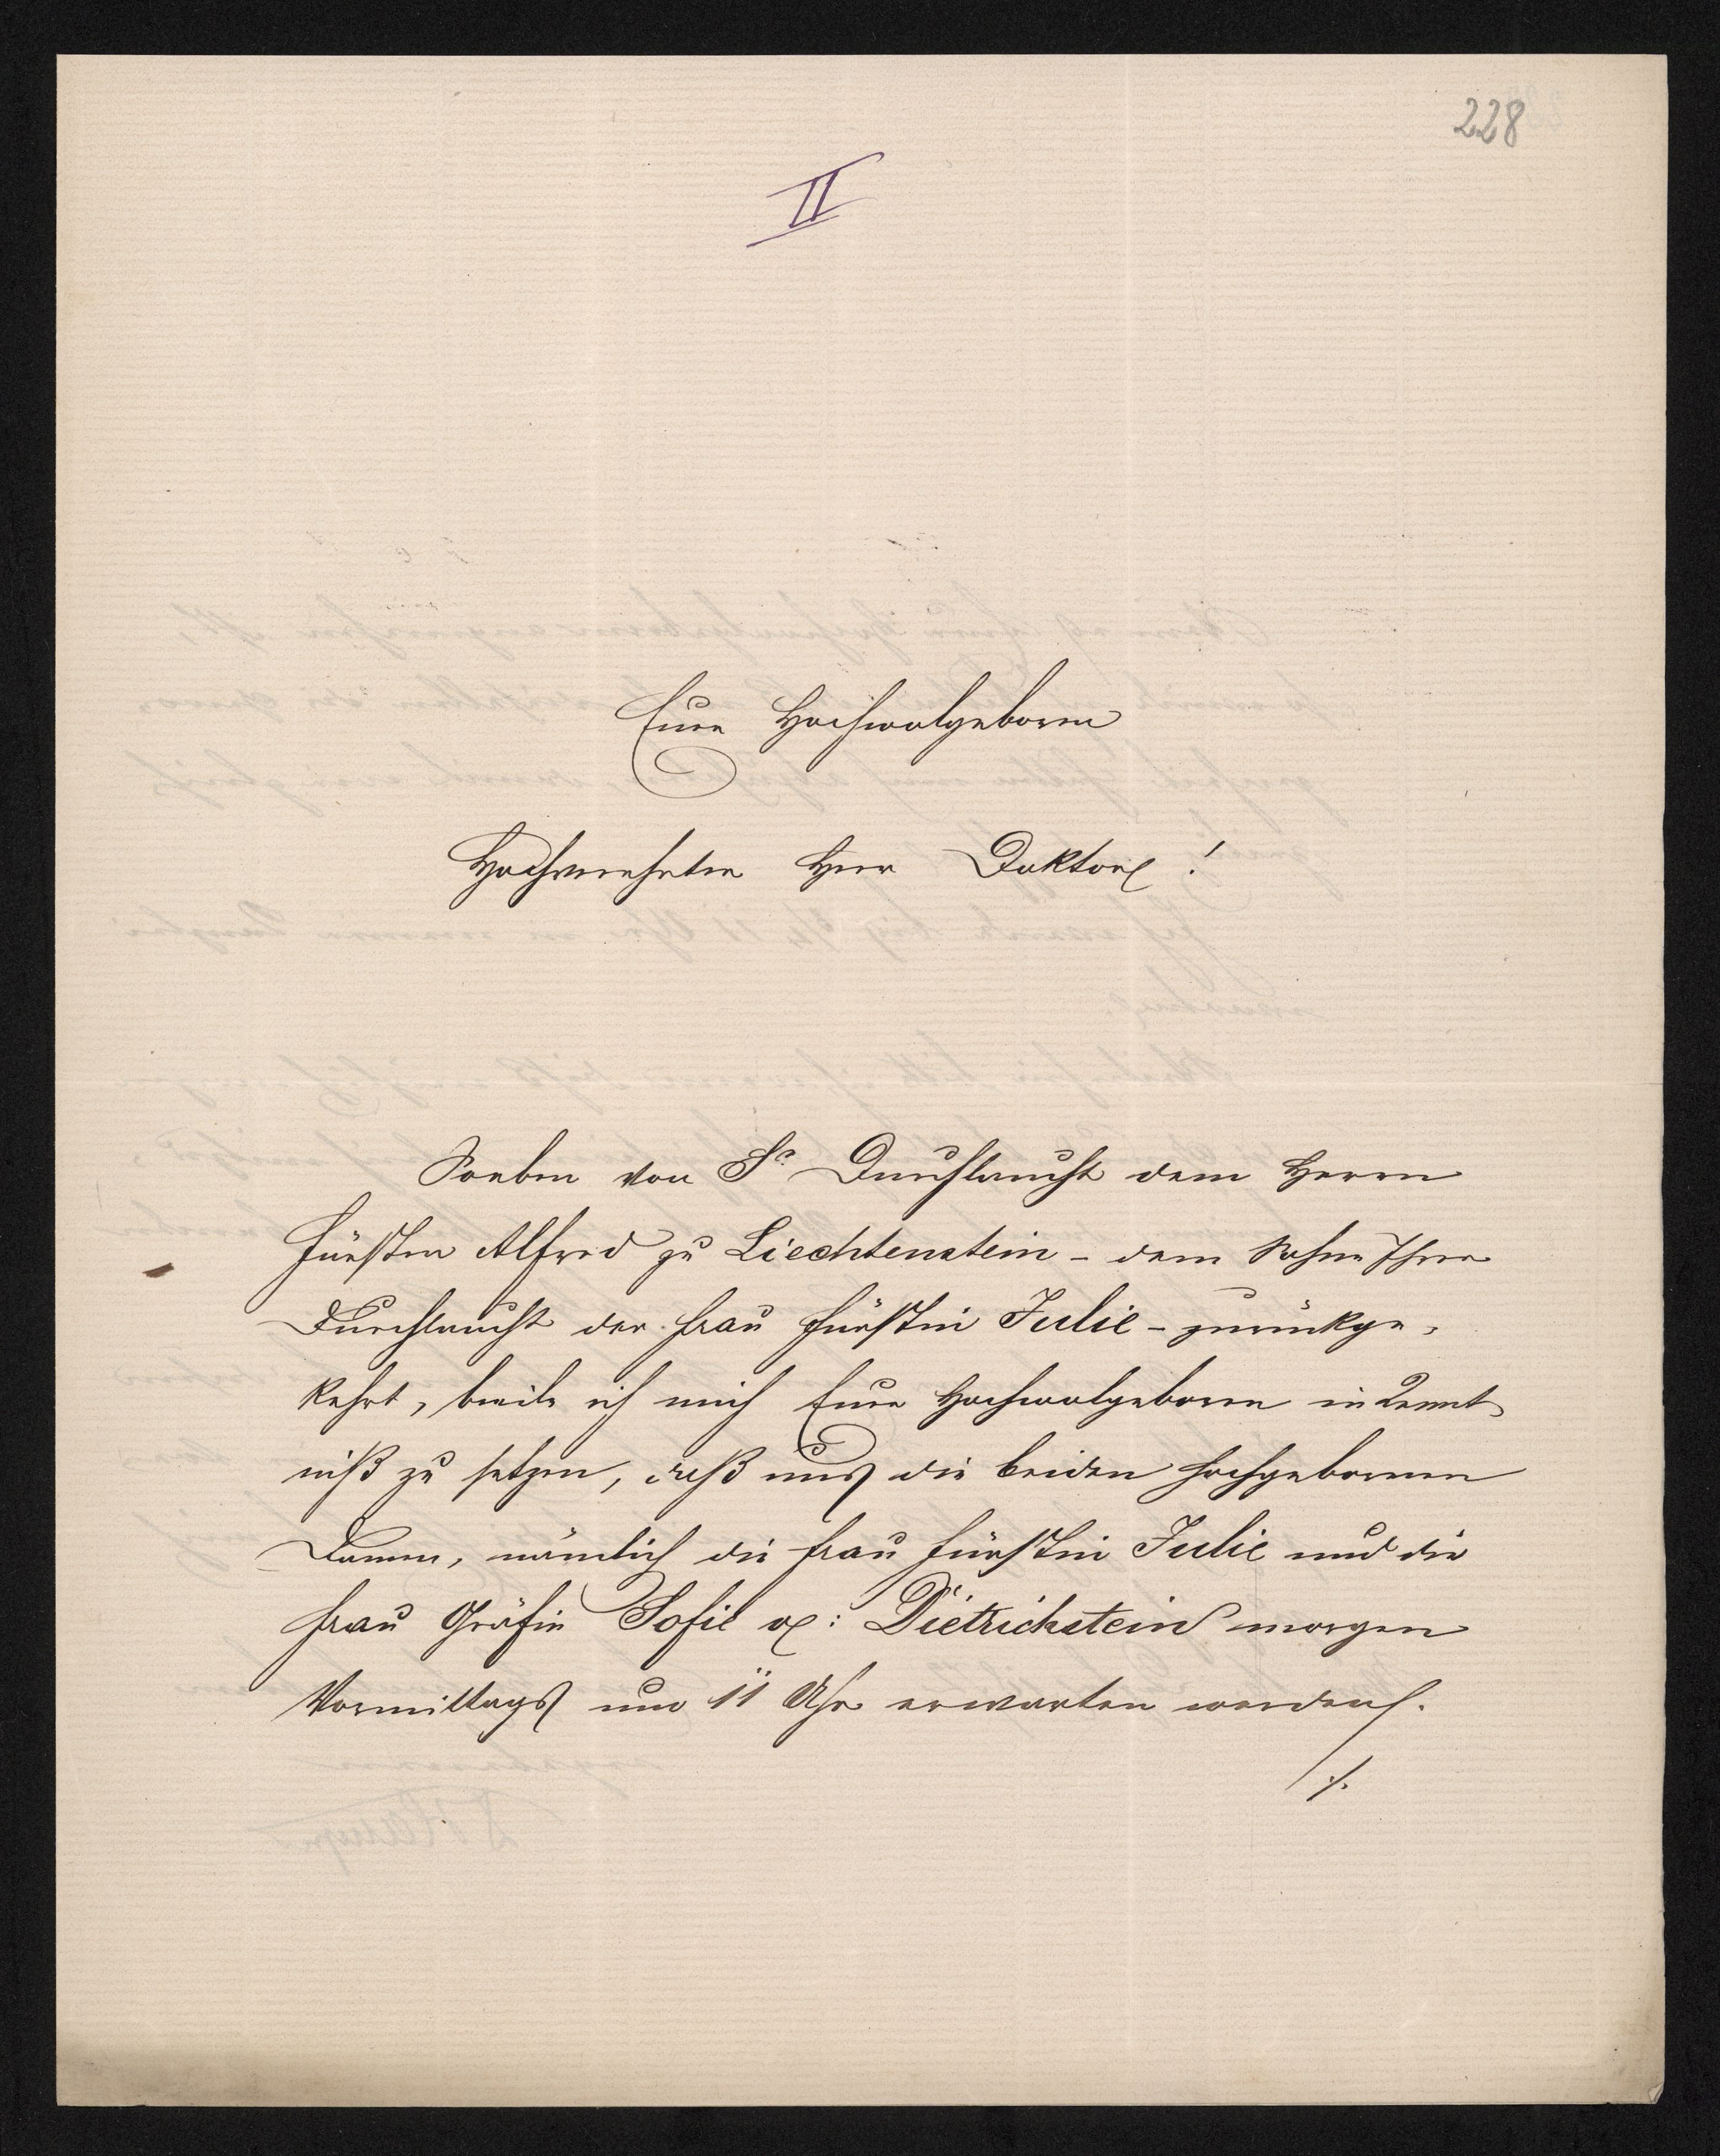 228
II
Eure Hochwolgeboren
Hochverehrter Herr Doktor!
Soeben von Sr Durchlaucht dem Herrn
Fürsten Alfred zu Liechtenstein - dem Sohne Ihrer
Durchlaucht der Frau Fürstin Julie - zurückge-
kehrt, beeile ich mich Eure Hochwolgeboren in Kennt-
niß zu setzen, daß uns die beiden hochgebornen
Damen, nämlich die Frau Fürstin Julie und die
Frau Gräfin Sofie v: Dietrichstein morgen
Vormittags um 11 Uhr erwarten werden.
./.